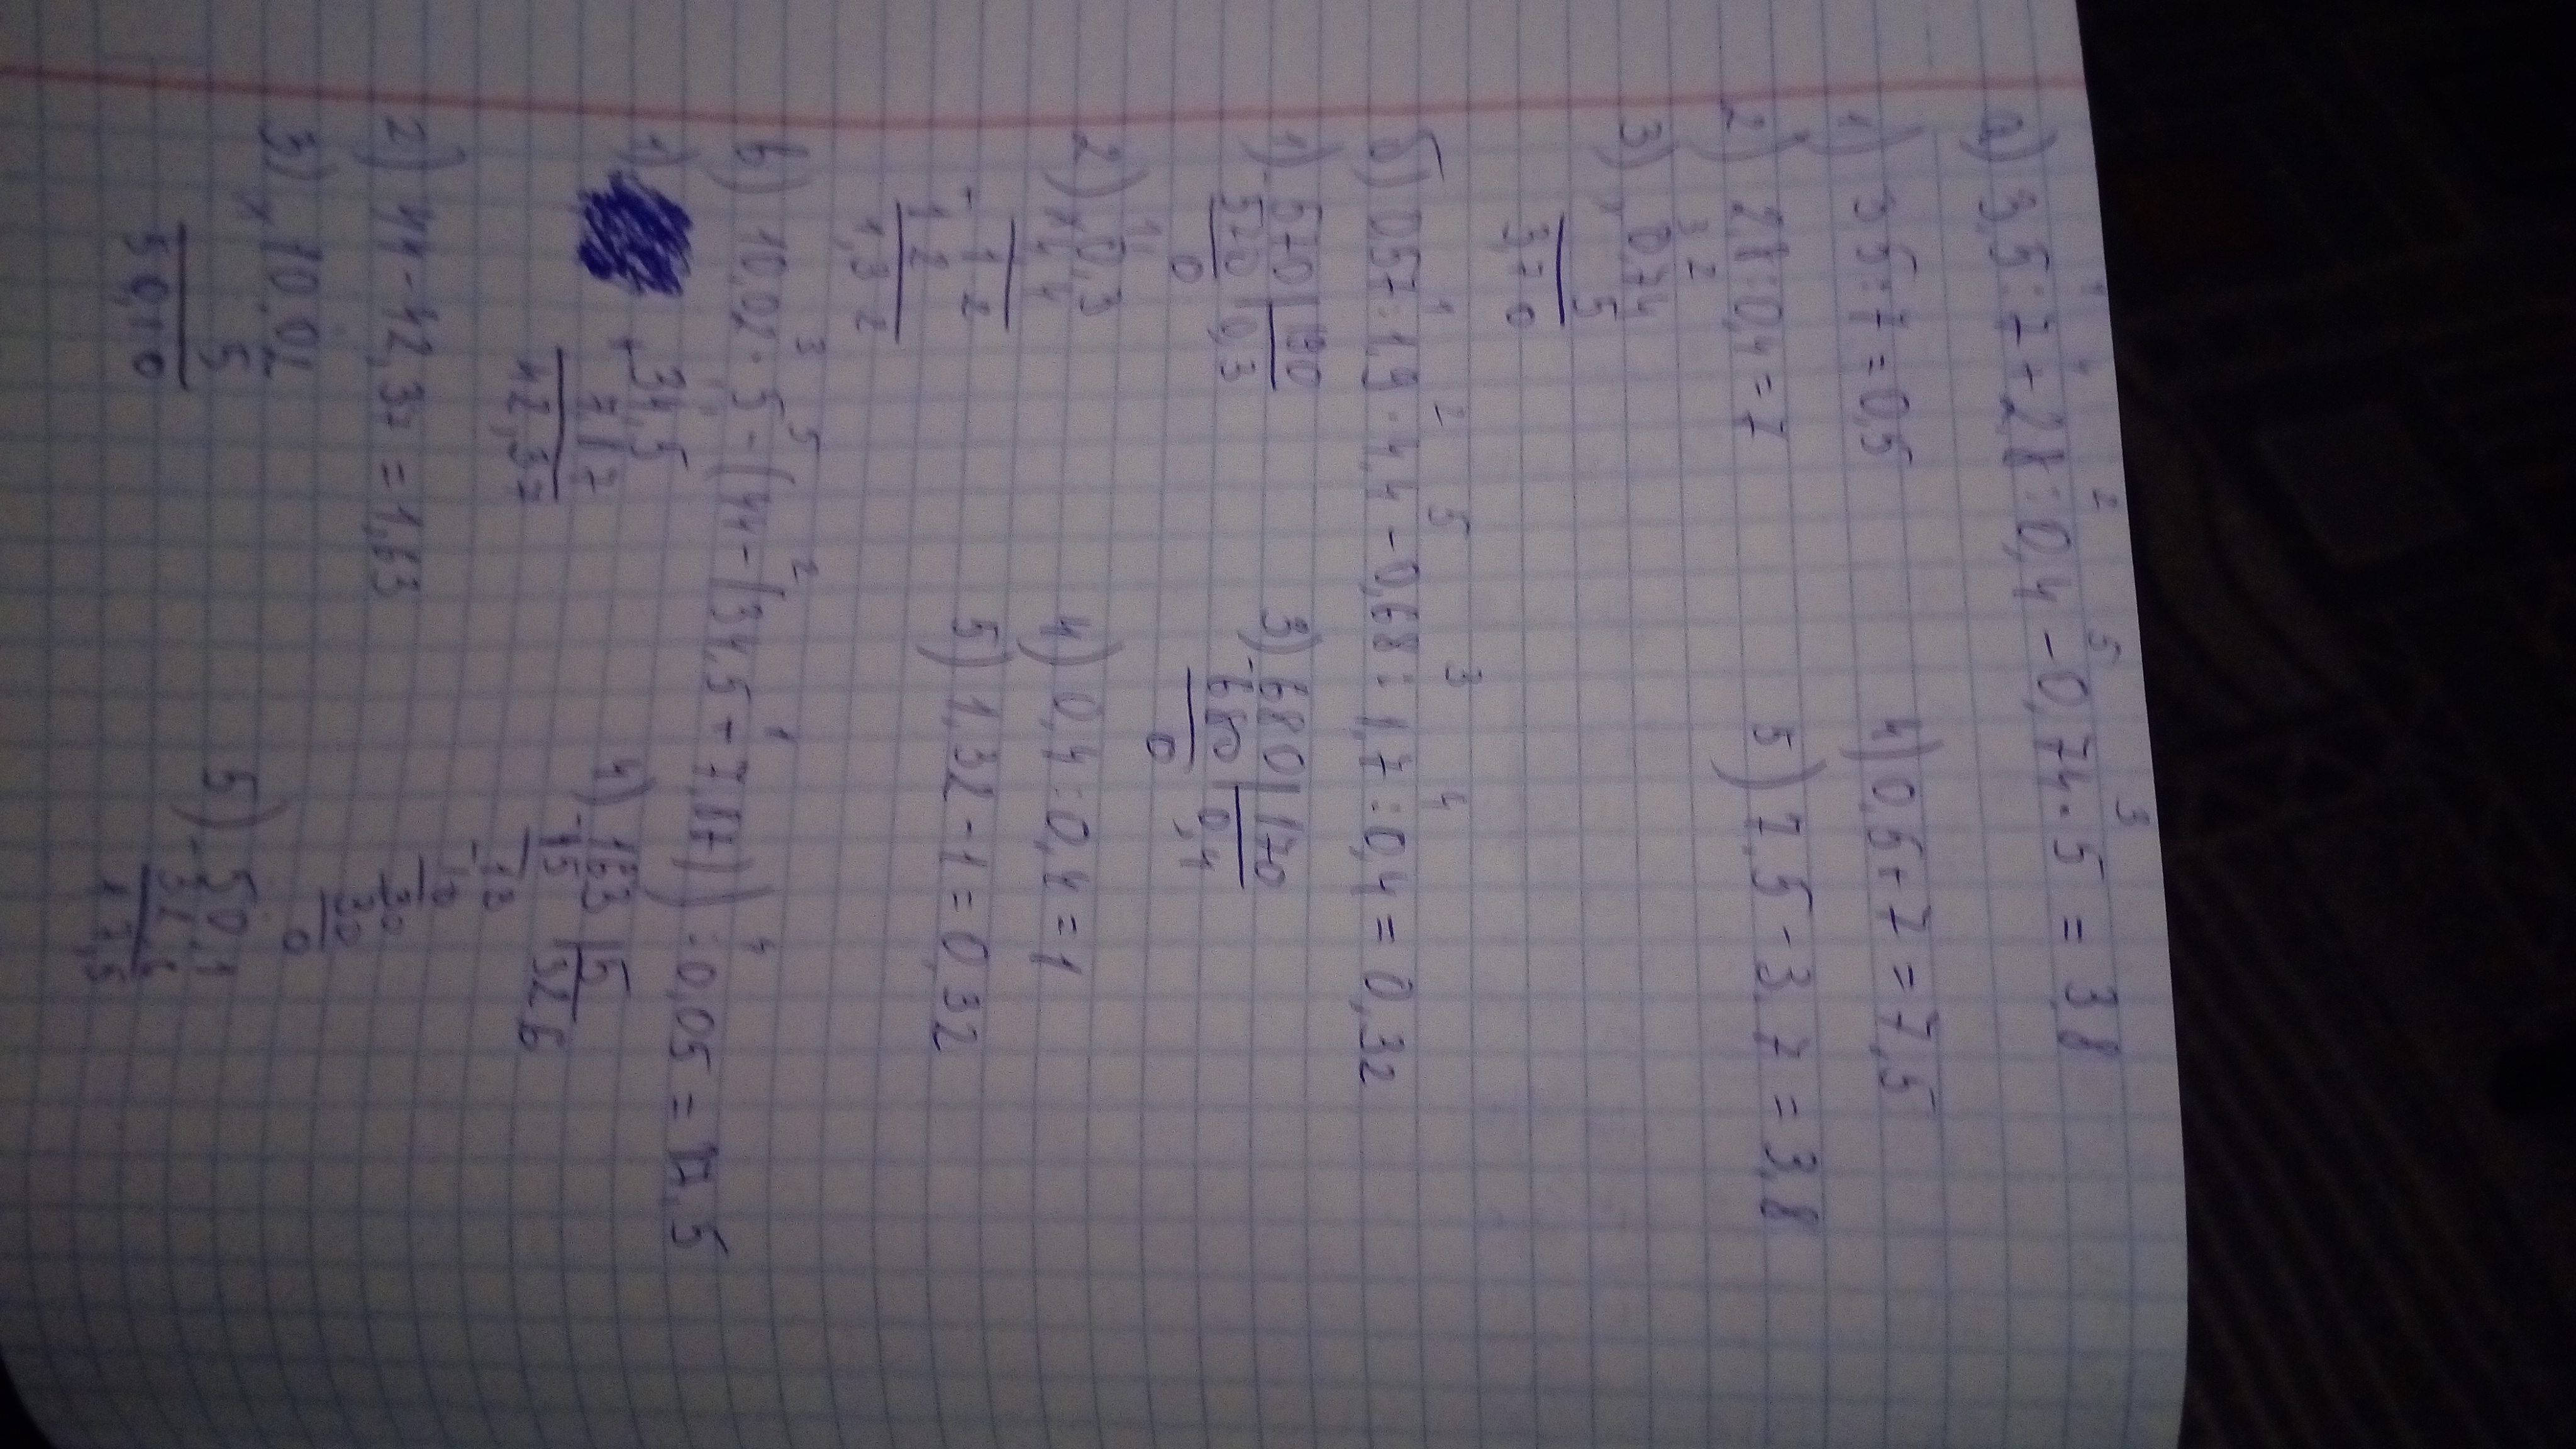 1 4 2 5 3
а) 3,5 : 7 + 2,8 : 0,4 - 0,74 · 5 = 3,8
1) 3,5 : 7 = 0,5
2) 2,8 : 0,4 = 7
3 2
3) × 0,74
5
3,70
4) 0,5 + 7 = 7,5
5) 7,5 - 3,7 = 3,8
1 2 5 3 4
б) 0,57 : 1,9 · 4,4 - 0,68 : 1,7 : 0,4 = 0,32
1) - 570 | 190
570 0,3
0
2) × 0,3
4,4
+ 1 2
1 2
1,3 2
3) - 680 | 170
680 0,4
0
4) 0,4 : 0,4 = 1
5) 1,32 - 1 = 0,32
3 5 2 1 4
в) 10,02 · 5 - (44 - (34,5 + 7,87)) : 0,05 = 17,5
1) + 34,5
7,87
42,37
2) 44 - 42,37 = 1,63
3) × 10,02
5
50,10
4) - 163 | 5
15 32,6
- 13
10
30
30
0
5) - 50,1
32,6
17,5